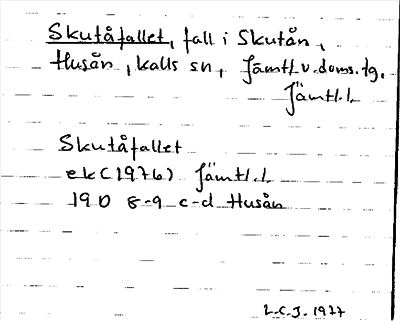 Skutåfallet, fall i Skutån,
Husån, Kalls sn, Jämtl. v. doms. tg.
Jämtl. l.
Skutåfallet
ek (1976) Jämtl. l
19D 8-9 c-d Husån
L.C.J. 1977